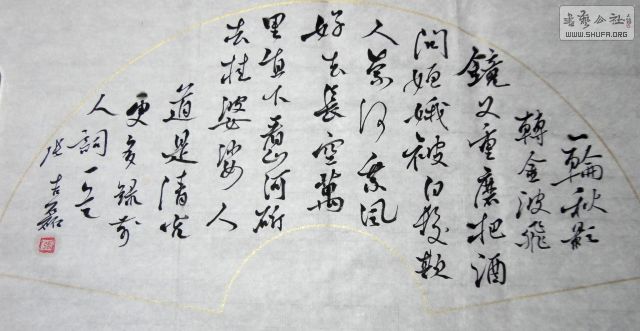 一輪秋影
轉金波飛
鏡又重磨把酒
問姮娥被白髮欺
人奈何乘風
好去長空萬
里直下看山河斫
去桂婆娑人
道是清光
更多錄前
人詞一首
張吉磊
書藝公社
WWW.SHUFA.ORG